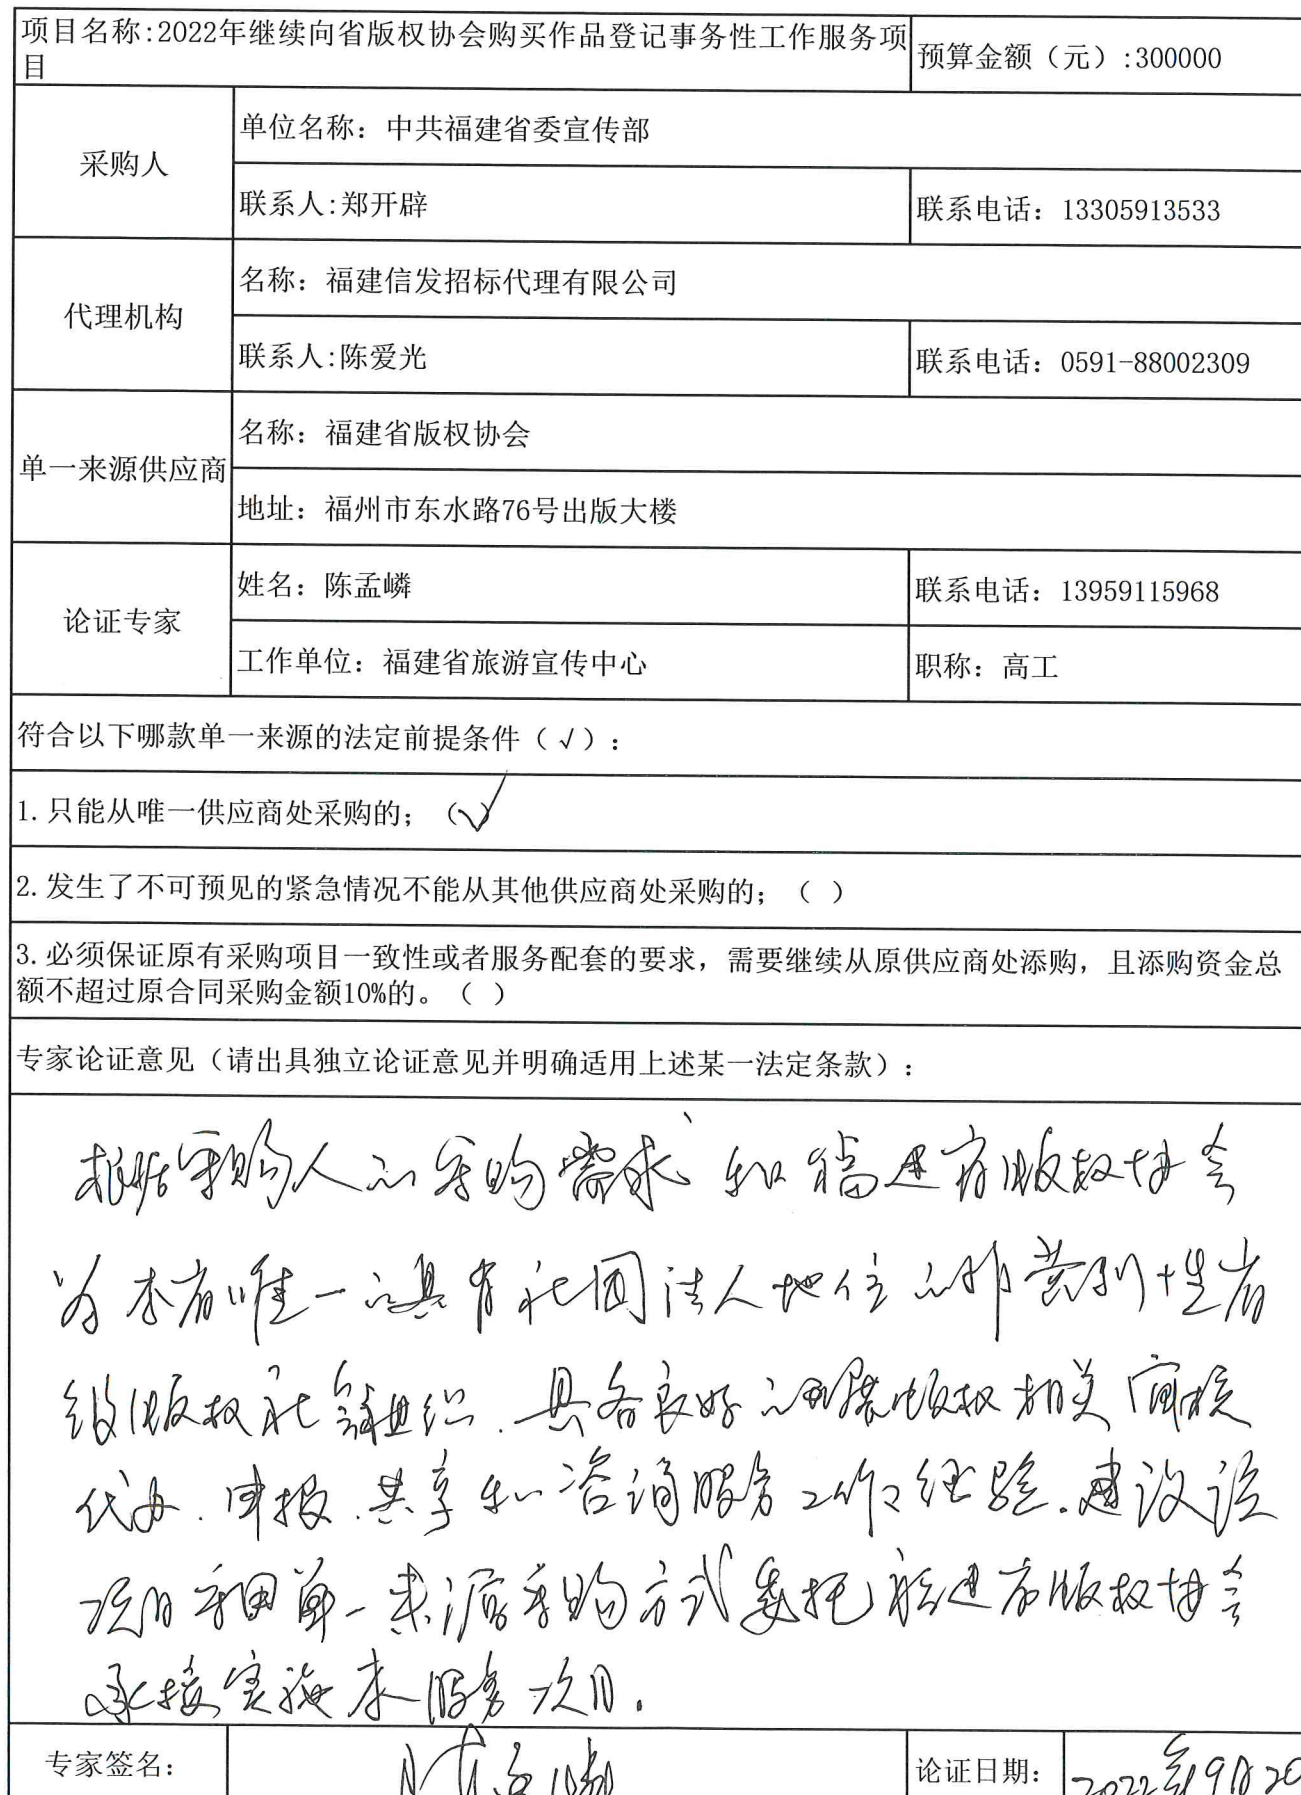 项目名称:2022年继续向省版权协会购买作品登记事务性工作服务项
目
预算金额（元）:300000
采购人
单位名称：中共福建省委宣传部
联系人:郑开辟
联系电话：13305913533
代理机构
名称：福建信发招标代理有限公司
联系人:陈爱光
联系电话：0591-88002309
单一来源供应商
名称：福建省版权协会
地址：福州市东水路76号出版大楼
论证专家
姓名：陈孟嶙
联系电话：13959115968
工作单位：福建省旅游宣传中心
职称：高工
符合以下哪款单一来源的法定前提条件（√）:
1.只能从唯一供应商处采购的；（√）
2.发生了不可预见的紧急情况不能从其他供应商处采购的；（ ）
3.必须保证原有采购项目一致性或者服务配套的要求，需要继续从原供应商处添购，且添购资金总
额不超过原合同采购金额10%的。（ ）
专家论证意见（请出具独立论证意见并明确适用上述某一法定条款）:
根据采购人的采购需求和福建省版权协会
为本省唯一的具有社团法人地位的非营利性省
级版权社会组织.具备良好的版权相关审核
代办.申报.共享和咨询服务工作经验.建议该
项目采用单一来源采购方式委托福建省版权协会
承接实施本服务项目.
专家签名：
陈孟嶙
论证日期：
2022年9月20